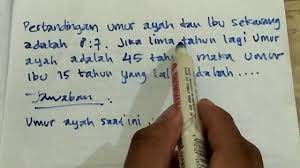 Perbandingan umur ayah dan Ibu sekarang
adalah 8:7. Jika lima tahun lagi umur
ayah adalah 45 tahun maka umur
ibu 15 tahun yang lalu adalah ....
Jawaban :
Umur ayah saat ini